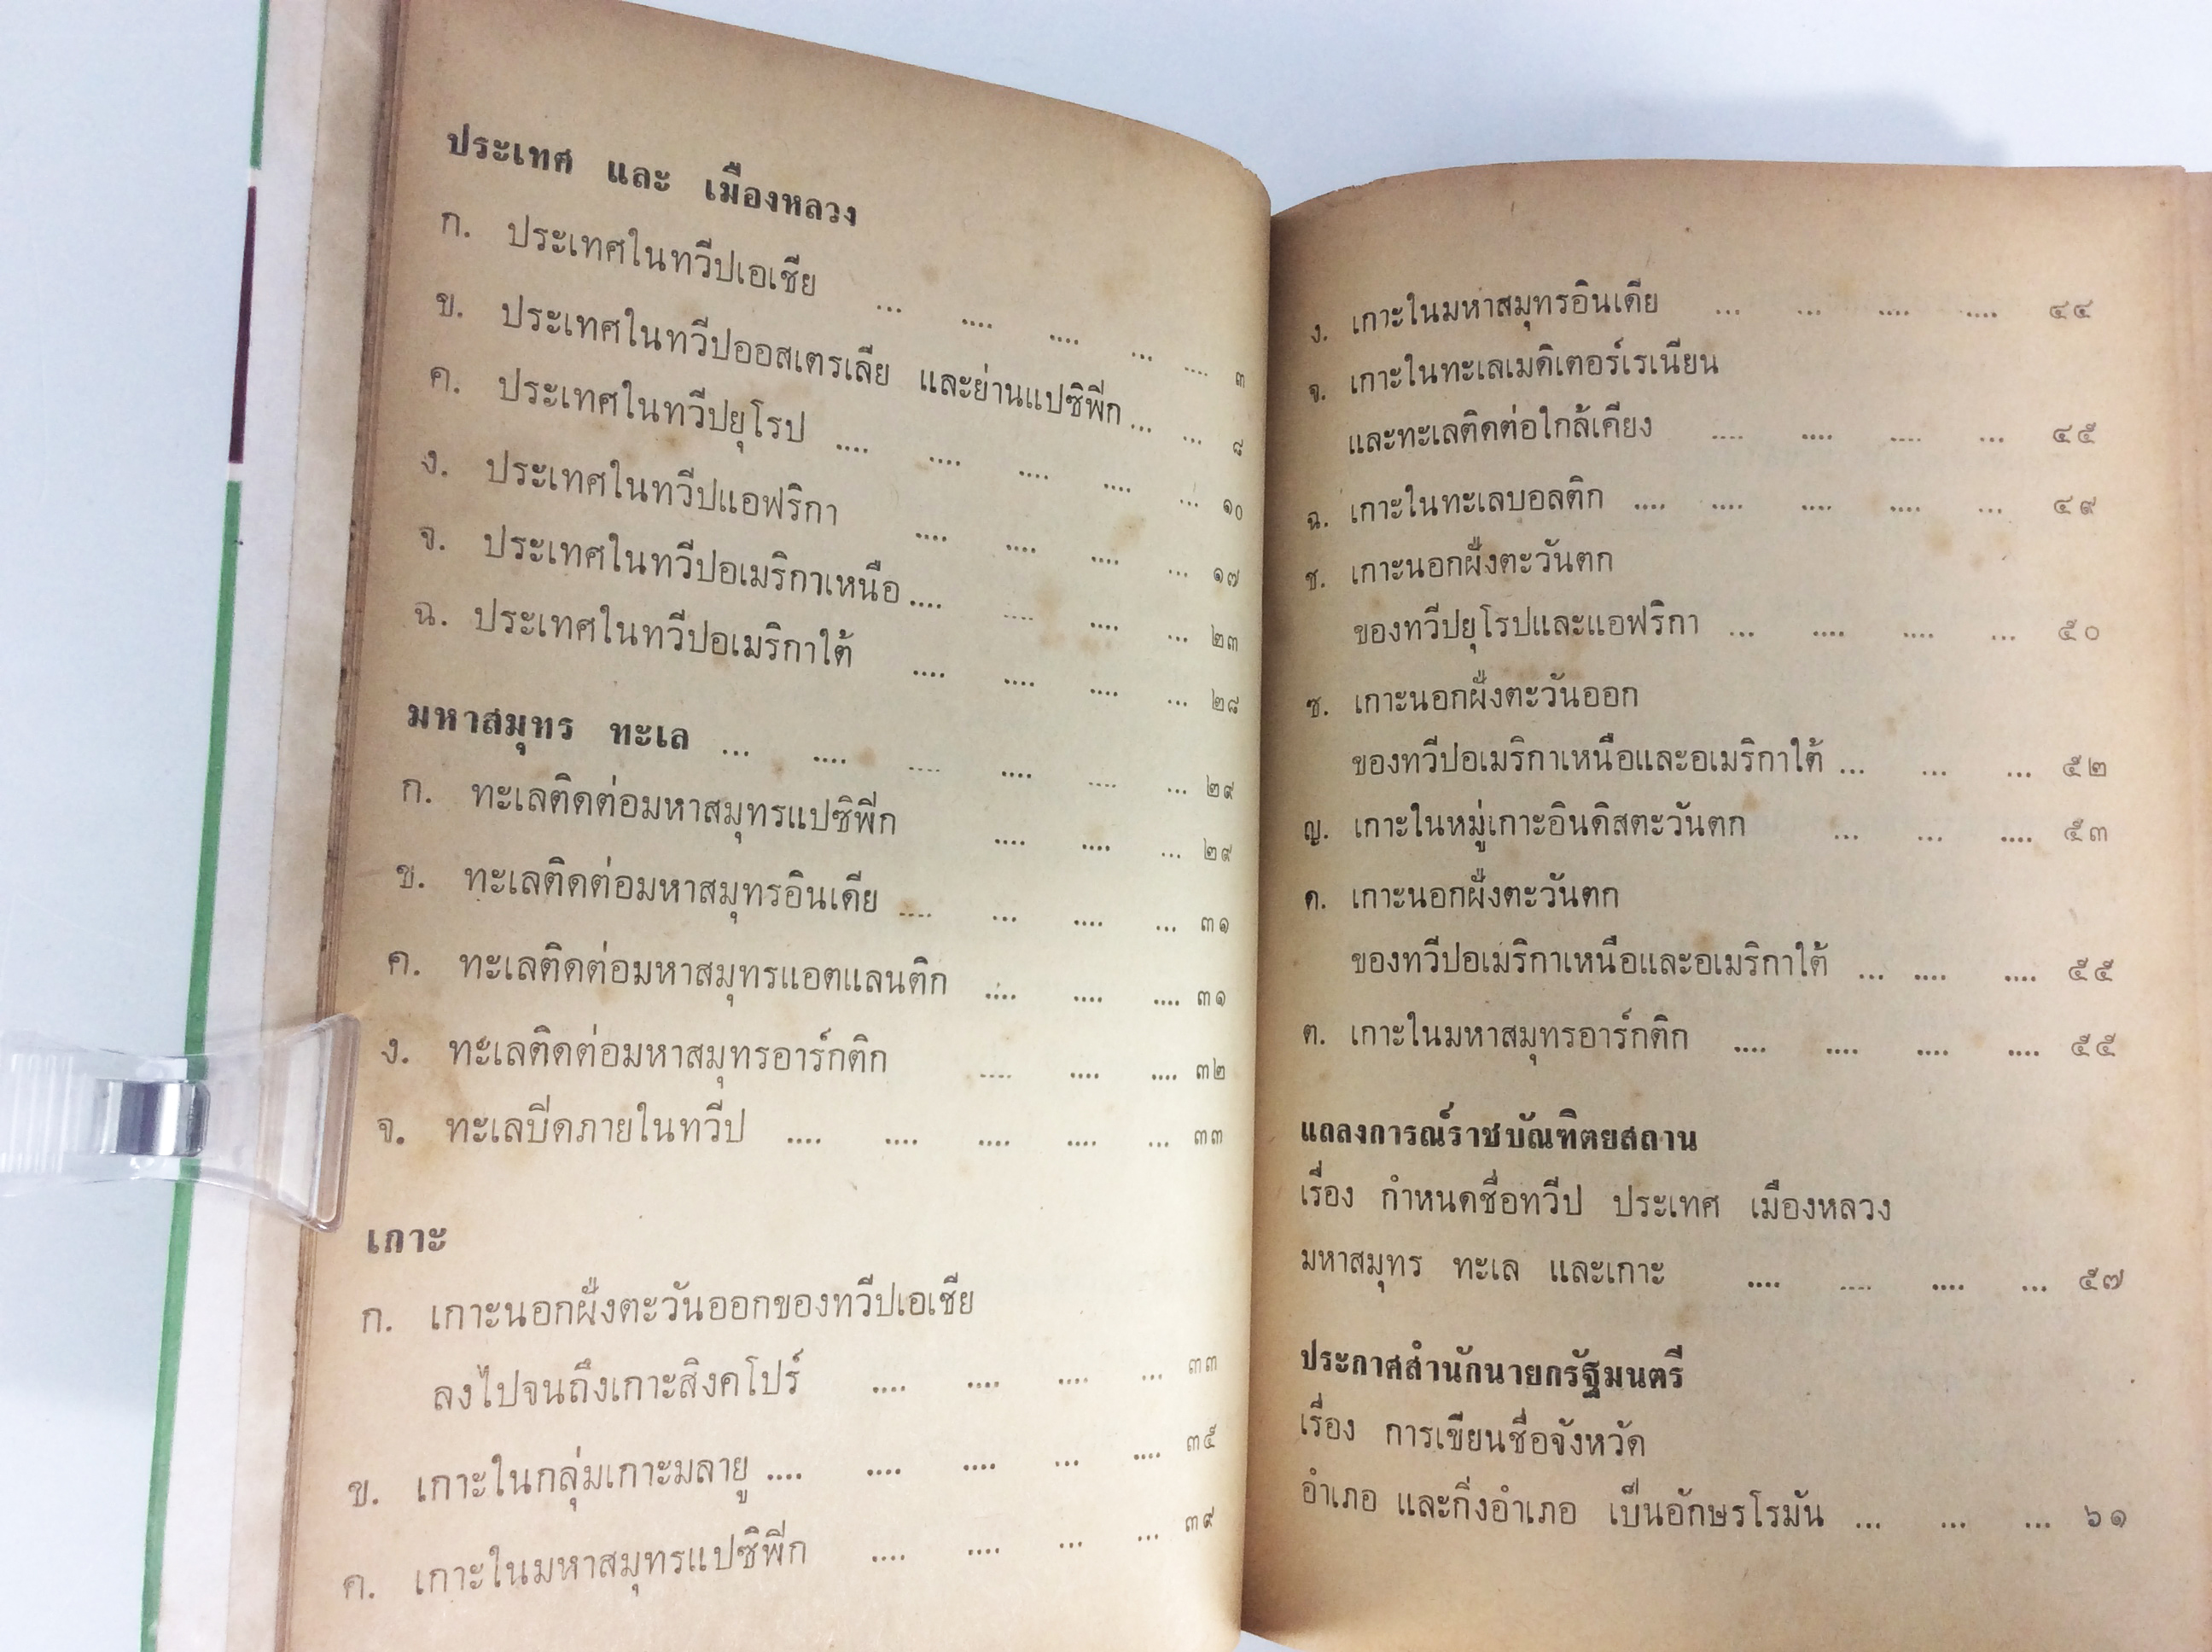 ประเทศ และ เมืองหลวง
ก. ประเทศในทวีปเอเชีย ... .... .... ... .... ๓
ข. ประเทศในทวีปออสเตรเลีย และย่านแปซิฟิก ... ... ๘
ค. ประเทศในทวีปยุโรป .... .... .... .... ... ๑๐
ง. ประเทศในทวีปแอฟริกา .... .... .... ... ๑๗
จ. ประเทศในทวีปอเมริกาเหนือ .... .... .... ... ๒๓
ฉ. ประเทศในทวีปอเมริกาใต้ .... .... .... ... ๒๘
มหาสมุทร ทะเล ... .... .... .... .... ... ๒๙
ก. ทะเลติดต่อมหาสมุทรแปซิฟิก .... .... ... ๒๙
ข. ทะเลติดต่อมหาสมุทรอินเดีย .... ... .... ... ๓๑
ค. ทะเลติดต่อมหาสมุทรแอตแลนติก .... .... .... ๓๑
ง. ทะเลติดต่อมหาสมุทรอาร์กติก .... .... .... ๓๒
จ. ทะเลปิดภายในทวีป .... .... .... .... ... ๓๓
เกาะ
ก. เกาะนอกฝั่งตะวันออกของทวีปเอเชีย
ลงไปจนถึงเกาะสิงคโปร์ .... .... .... ... ๓๓
ข. เกาะในกลุ่มเกาะมลายู .... .... .... ... .... ๓๕
ค. เกาะในมหาสมุทรแปซิฟิก .... .... ... ... ๓๙
ง. เกาะในมหาสมุทรอินเดีย ... ... .... .... ๔๔
จ. เกาะในทะเลเมดิเตอร์เรเนียน
และทะเลติดต่อใกล้เคียง .... .... .... ... ๔๕
ฉ. เกาะในทะเลบอลติก .... .... .... .... ... ๔๙
ช. เกาะนอกฝั่งตะวันตก
ของทวีปยุโรปและแอฟริกา ... .... .... ... ๕๐
ซ. เกาะนอกฝั่งตะวันออก
ของทวีปอเมริกาเหนือและอเมริกาใต้ ... ... ... ๕๒
ญ. เกาะในหมู่เกาะอินดิสตะวันตก ... ... .... ๕๓
ด. เกาะนอกฝั่งตะวันตก
ของทวีปอเมริกาเหนือและอเมริกาใต้ ... .... .... ๕๕
ต. เกาะในมหาสมุทรอาร์กติก .... .... .... .... ๕๕
แถลงการณ์ราชบัณฑิตยสถาน
เรื่อง กำหนดชื่อทวีป ประเทศ เมืองหลวง
มหาสมุทร ทะเล และเกาะ .... .... .... ... ๕๗
ประกาศสำนักนายกรัฐมนตรี
เรื่อง การเขียนชื่อจังหวัด
อำเภอ และกิ่งอำเภอ เป็นอักษรโรมัน ... ... ... ๖๑